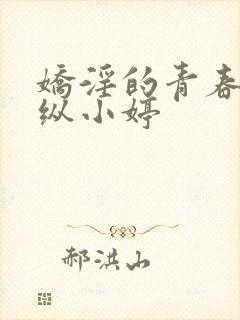 娇淫的青春
纵小婷
郝洪山